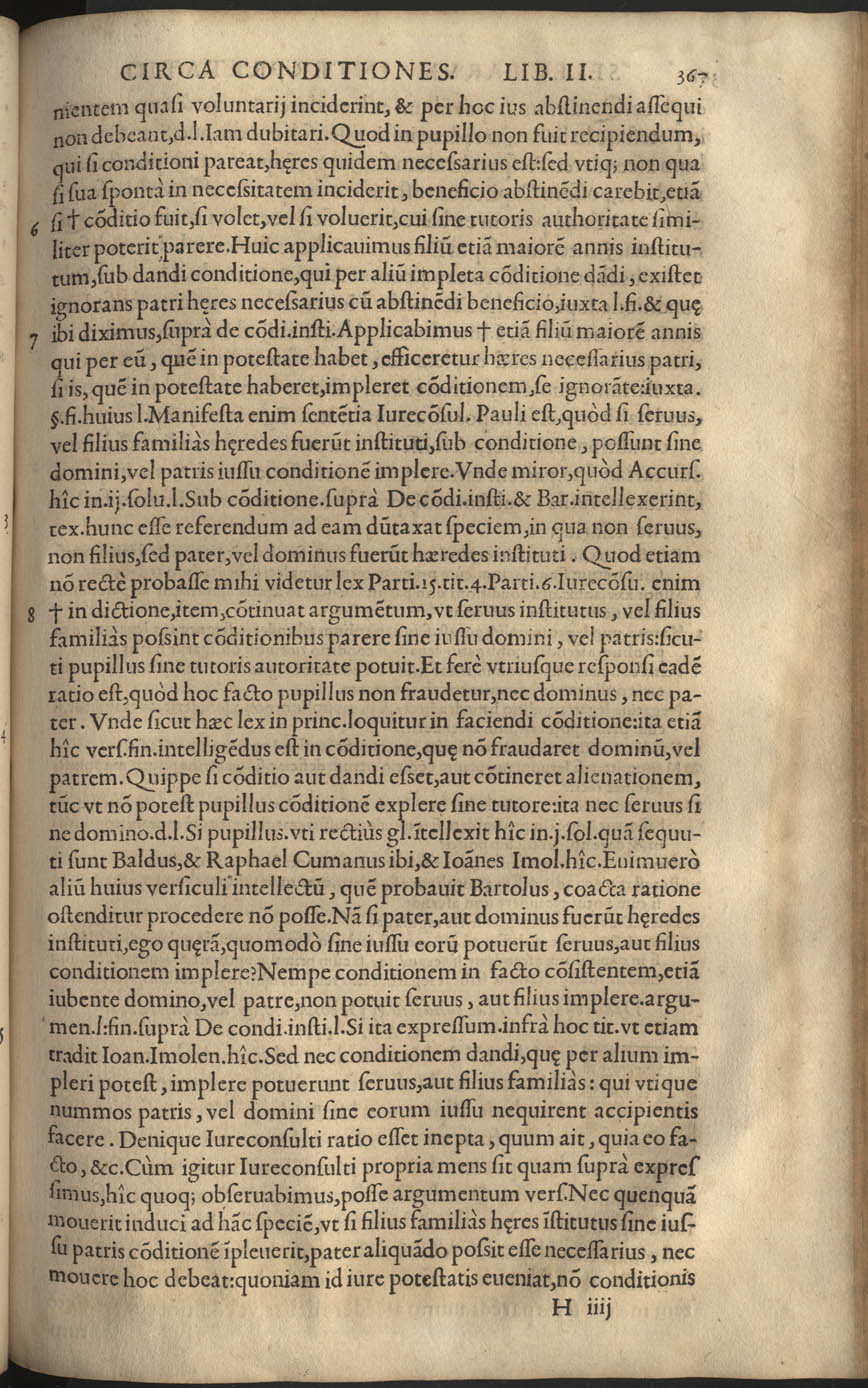 CIRCA CONDITIONES. LIB. II. 367
nientem quasi voluntarij inciderint, & per hoc ius abstinendi assequi
non debeant,d.l.Iam dubitari.Quod in pupillo non fuit recipiendum,
qui si conditioni pareat,hęres quidem necessarius est:sed vtiq; non qua
si sua spontà in necessitatem inciderit, beneficio abstinẽdi carebit,etiã
6 si † cõditio fuit,si volet,vel si voluerit,cui sine tutoris authoritate simi-
liter poterit parere.Huic applicauimus filiũ etiã maiorẽ annis institu-
tum,sub dandi conditione,qui per aliũ impleta cõditione dãdi, existet
ignorans patri hęres necessarius cũ abstinẽdi beneficio,iuxta l.fi.& quę
7 ibi diximus,suprà de cõdi.insti.Applicabimus † etiã filiũ maiorẽ annis
qui per eũ, quẽ in potestate habet, efficeretur hæres necessarius patri,
si is, quẽ in potestate haberet,impleret cõditionem,se ignorãte:iuxta.
§.fi.huius l.Manifesta enim sentẽtia Iurecõsul. Pauli est,quòd si seruus,
vel filius familiàs hęredes fuerũt instituti,sub conditione, possunt sine
domini,vel patris iussu conditionẽ implere.Vnde miror,quòd Accurs.
hîc in.ij.solu.l.Sub cõditione.suprà De cõdi.insti.& Bar.intellexerint,
tex.hunc esse referendum ad eam dũtaxat speciem,in qua non seruus,
non filius,sed pater,vel dominus fuerũt hæredes instituti. Quod etiam
nõ rectè probasse mihi videtur lex Parti.15.tit.4.Parti.6.Iurecõsu. enim
8 † in dictione,item,cõtinuat argumẽtum,vt seruus institutus, vel filius
familiàs possint cõditionibus parere sine iussu domini, vel patris:sicu-
ti pupillus sine tutoris autoritate potuit.Et ferè vtriusque responsi eadẽ
ratio est,quòd hoc facto pupillus non fraudetur,nec dominus, nec pa-
ter. Vnde sicut hæc lex in princ.loquitur in faciendi cõditione:ita etiã
hîc vers.fin.intelligẽdus est in cõditione,quę nõ fraudaret dominũ,vel
patrem.Quippe si cõditio aut dandi esset,aut cõtineret alienationem,
tũc vt nõ potest pupillus cõditionẽ explere sine tutore:ita nec seruus si
ne domino.d.l.Si pupillus.vti rectiùs gl.ĩtellexit hîc in.j.sol.quã sequu-
ti sunt Baldus,& Raphael Cumanus ibi,& Ioãnes Imol.hîc.Enimuerò
aliũ huius versiculi intellectũ, quẽ probauit Bartolus, coacta ratione
ostenditur procedere nõ posse.Nã si pater,aut dominus fuerũt hęredes
instituti,ego quęrã,quomodò sine iussu eorũ potuerũt seruus,aut filius
conditionem implere?Nempe conditionem in facto cõsistentem,etiã
iubente domino,vel patre,non potuit seruus, aut filius implere.argu-
men.l:fin.suprà De condi.insti.l.Si ita expressum.infrà hoc tit.vt etiam
tradit Ioan.Imolen.hîc.Sed nec conditionem dandi,quę per alium im-
pleri potest, implere potuerunt seruus,aut filius familiàs: qui vtique
nummos patris, vel domini sine eorum iussu nequirent accipientis
facere. Denique Iureconsulti ratio esset inepta, quum ait, quia eo fa-
cto, &c.Cùm igitur Iureconsulti propria mens sit quam suprà expres
simus,hîc quoq; obseruabimus,posse argumentum vers.Nec quenquã
mouerit induci ad hãc speciẽ,vt si filius familiàs hęres ĩstitutus sine ius-
su patris cõditionẽ ĩpleuerit,pater aliquãdo possit esse necessarius, nec
mouere hoc debeat:quoniam id iure potestatis eueniat,nõ conditionis
H iiij